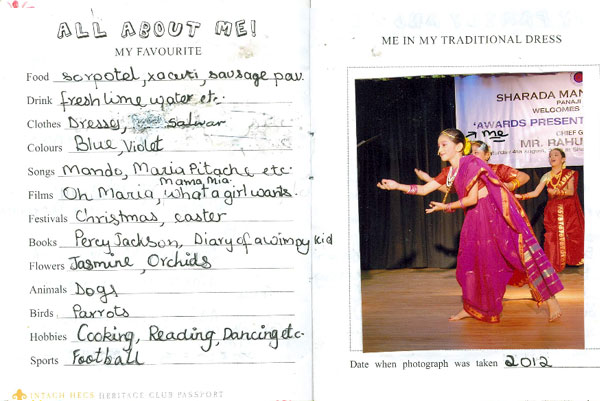 ALL ABOUT ME!
MY FAVOURITE
Food sorpotel, xacuti, sausage pav.
Drink fresh lime water etc.
Clothes Dresses, salwar
Colours Blue, Violet
Songs Mando, Maria Pitache etc.
Films Oh Maria, Mama Mia, What a girl wants.
Festivals Christmas, easter
Books Percy Jackson, Diary of a wimpy kid
Flowers Jasmine, Orchids
Animals Dogs
Birds Parrots
Hobbies Cooking, Reading, Dancing etc.
Sports Football
INTACH HECS HERITAGE CLUB PASSPORT
ME IN MY TRADITIONAL DRESS
SHARADA MAN
PANAJI
WELCOMES
'AWARDS PRESENT
me
CHIEF G
MR. RAHU
Date when photograph was taken 2012